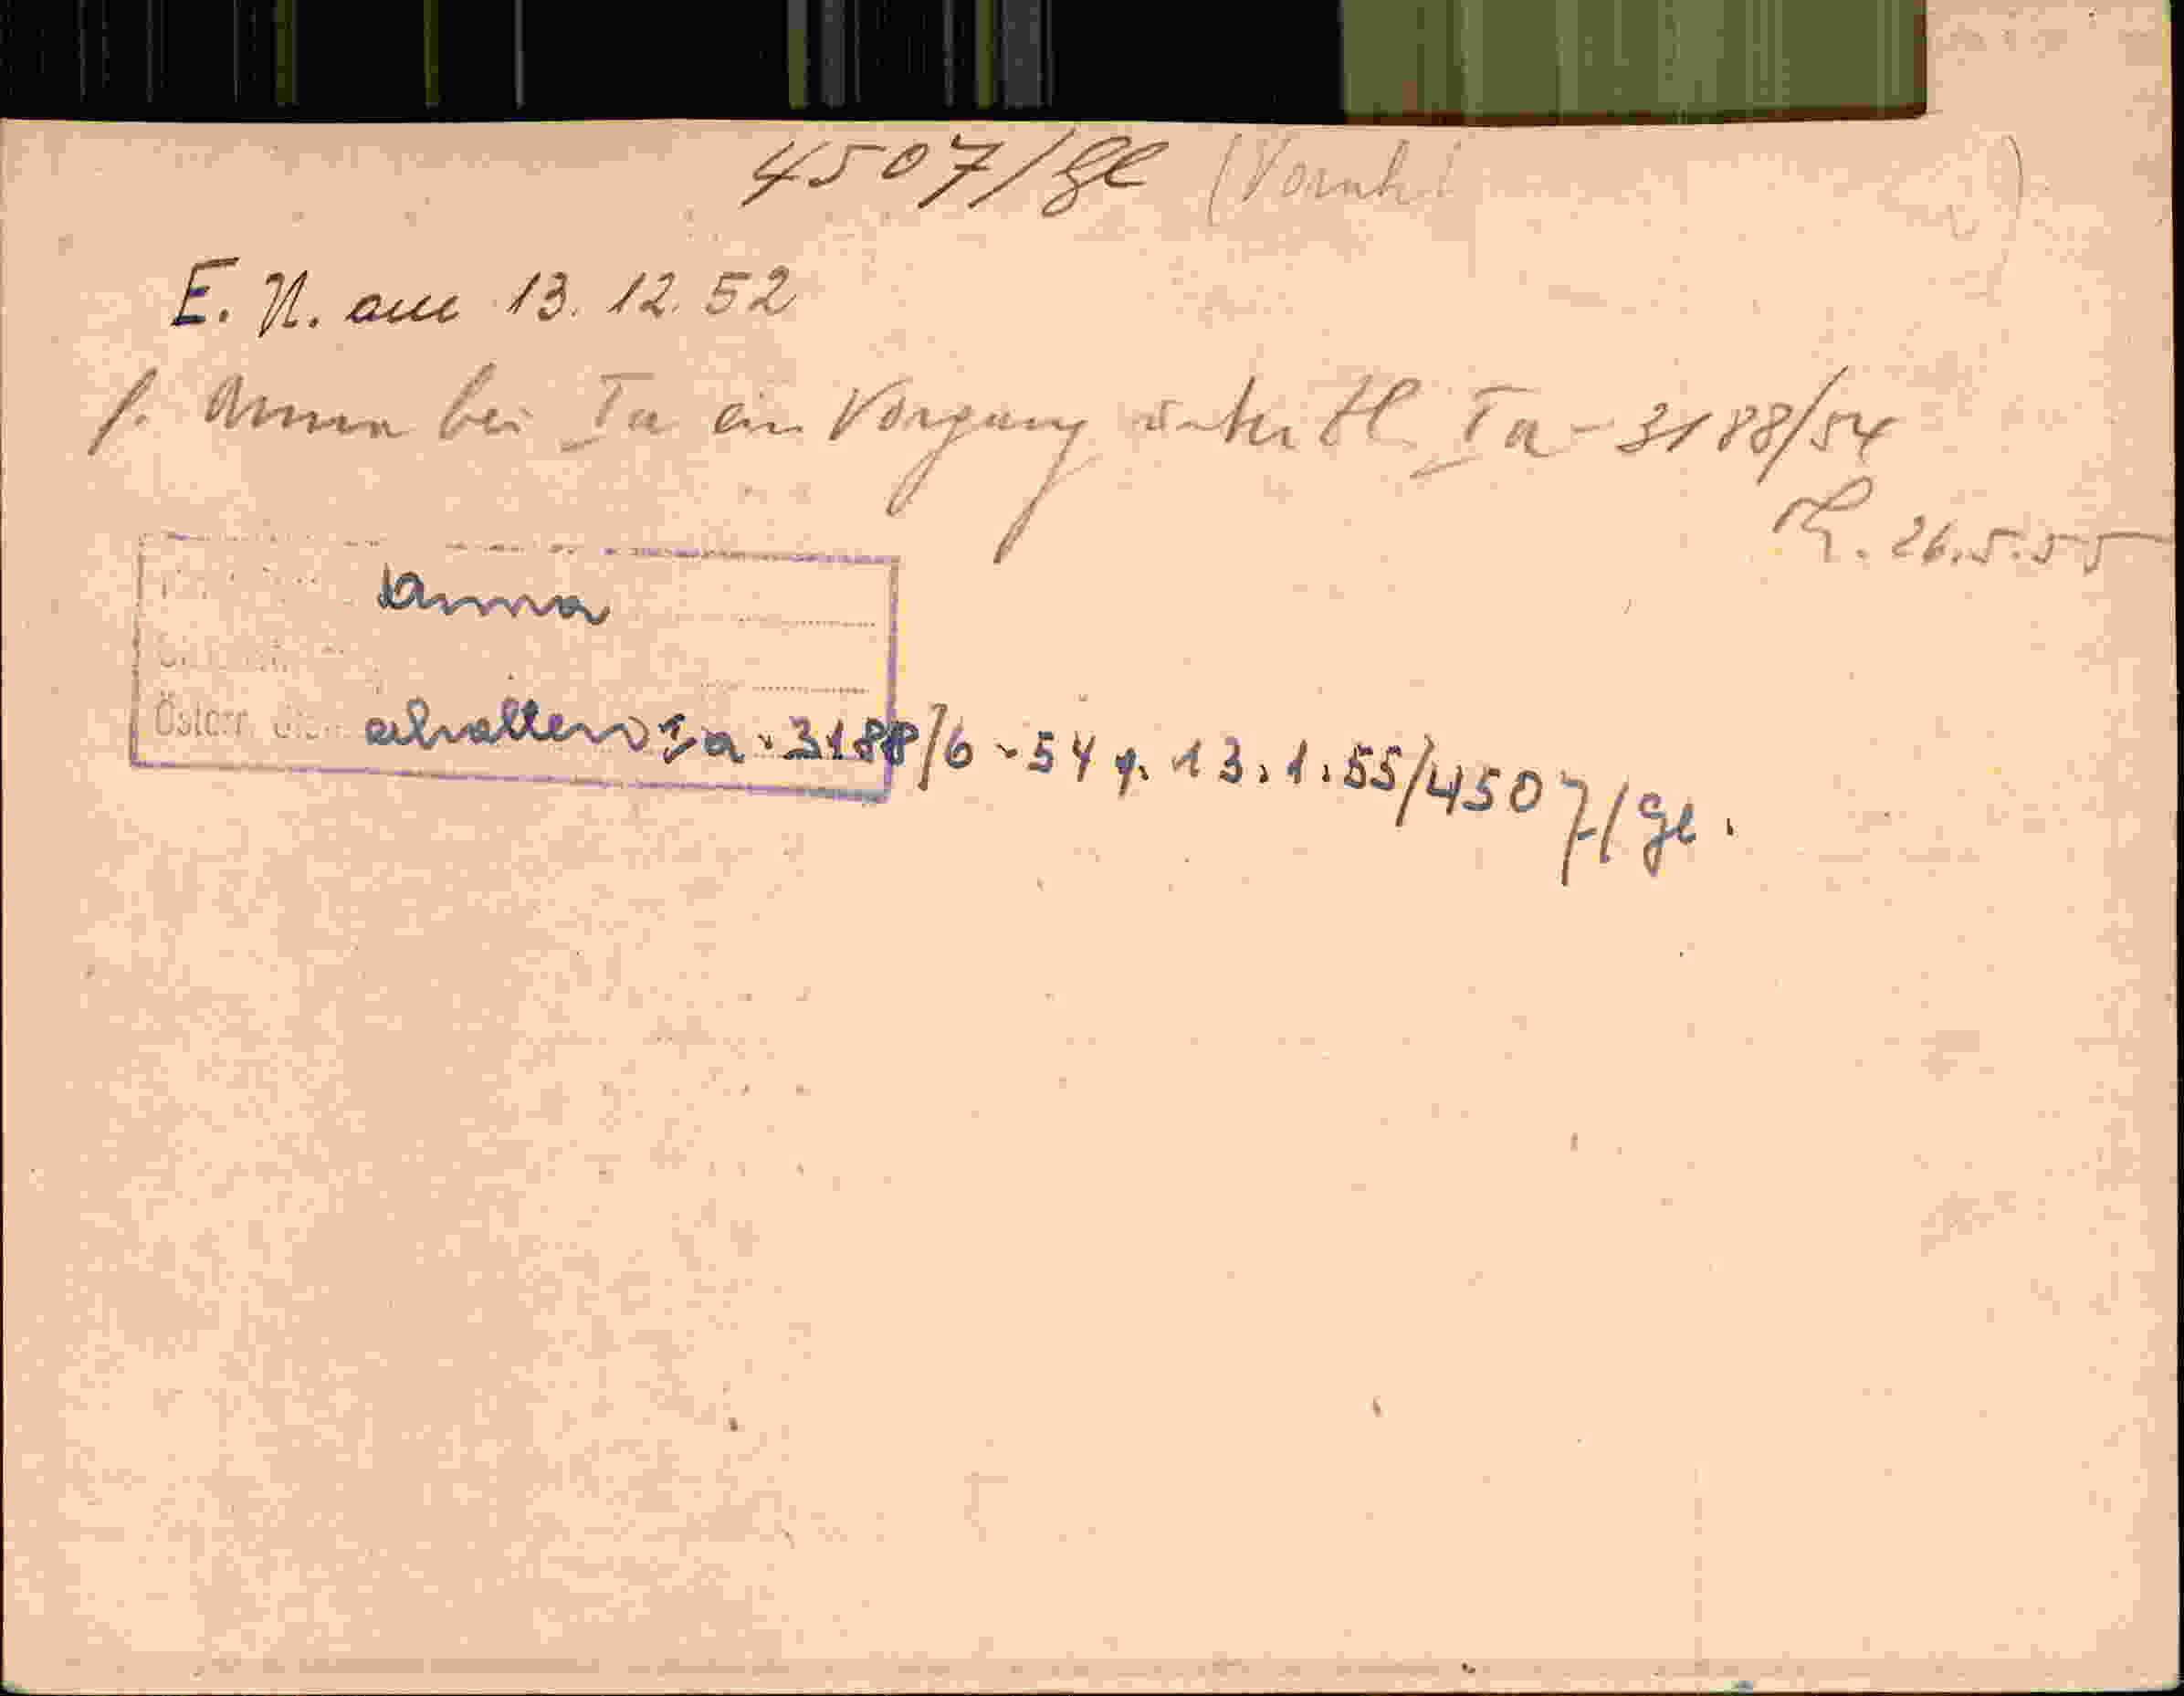 4507/Gl
E. N. am 13. 12. 52
f. Anna bei Ia ein Vorgang unter Zl. Ia - 3188/54
26.5.55
Anna
Österr.
erhalten Ia - 3188/6 - 54 v. 13.1.55/4507/Gl.